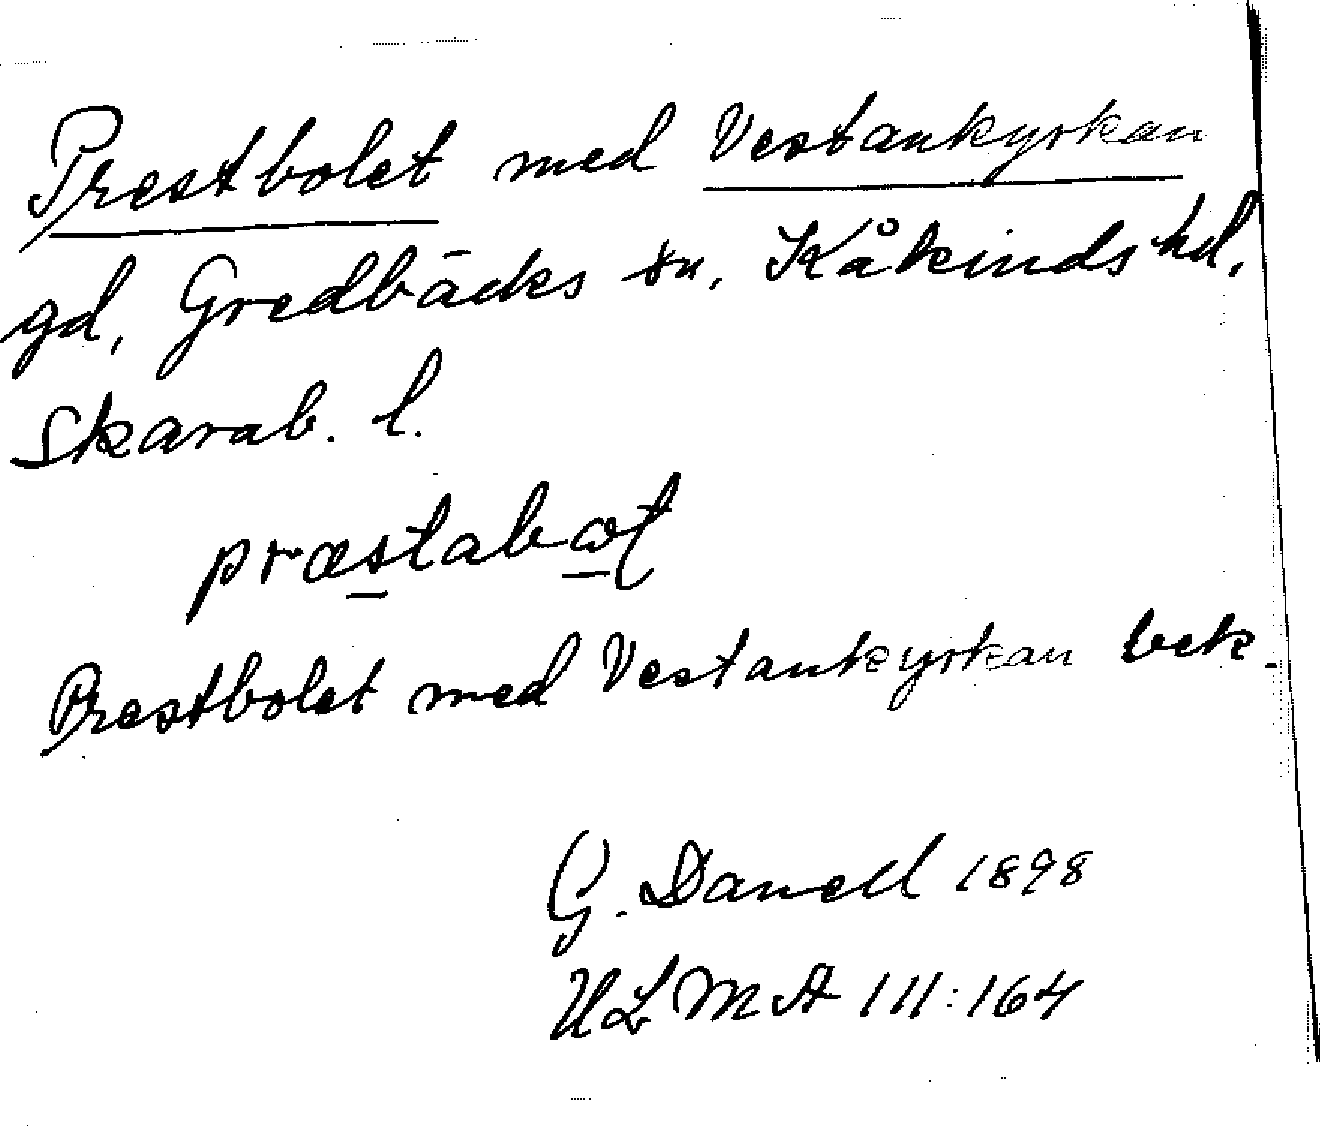 Prestbolet med Vestankyrkan
gd, Gredbäcks sn, Kåkinds hd,
Skarab. l.
præstabωt
Prestbolet med Vestankyrkan bek.
G. Danell 1898
ULMA 111:164